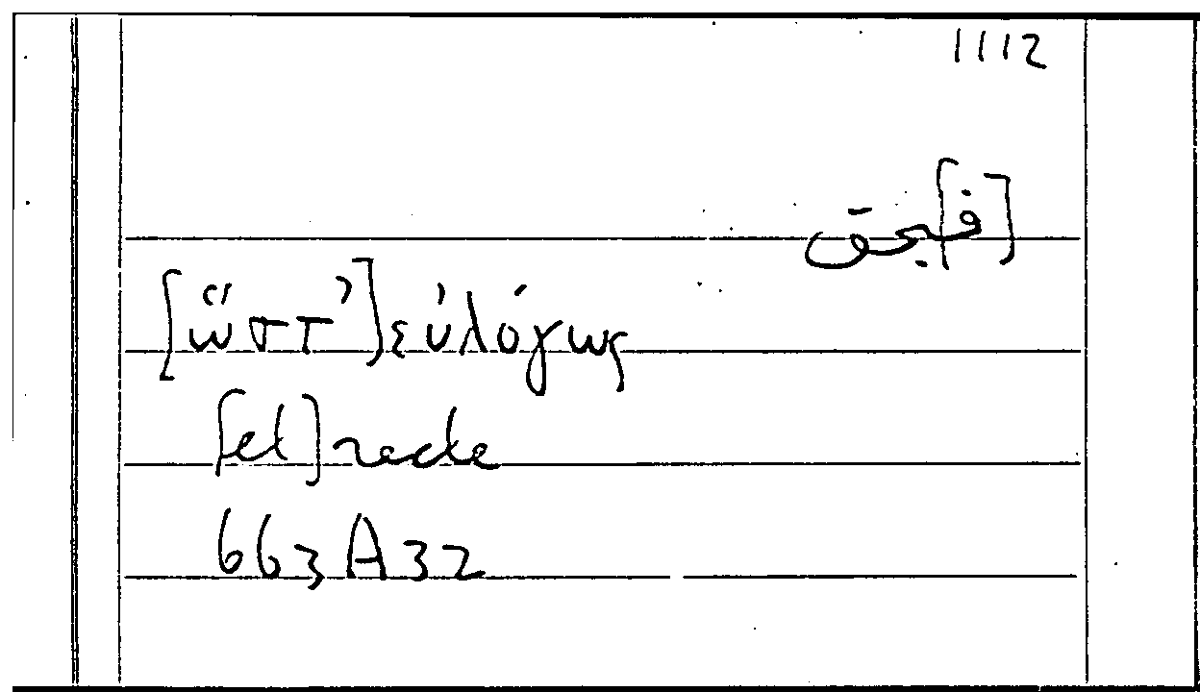 1112
[ف]بحق
[ὥστ’]εὐλόγως
[et]recte
663A32